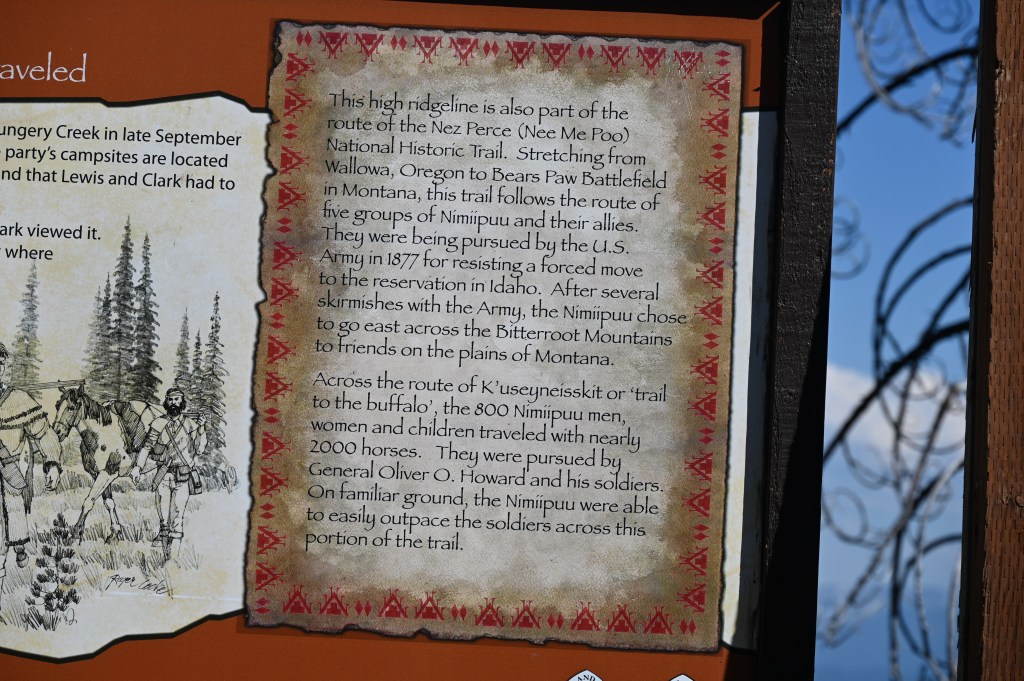 aveled
ungery Creek in late September
party's campsites are located
nd that Lewis and Clark had to
ark viewed it.
where
This high ridgeline is also part of the
route of the Nez Perce (Nee Me Poo)
National Historic Trail. Stretching from
Wallowa, Oregon to Bears Paw Battlefield
in Montana, this trail follows the route of
five groups of Nimíipuu and their allies.
They were being pursued by the U.S.
Army in 1877 for resisting a forced move
to the reservation in Idaho. After several
skirmishes with the Army, the Nimíipuu chose
to go east across the Bitterroot Mountains
to friends on the plains of Montana.
Across the route of K'useyneisskit or 'trail
to the buffalo', the 800 Nimíipuu men,
women and children traveled with nearly
2000 horses. They were pursued by
General Oliver O. Howard and his soldiers.
On familiar ground, the Nimíipuu were able
to easily outpace the soldiers across this
portion of the trail.
Roger Cooke
AND